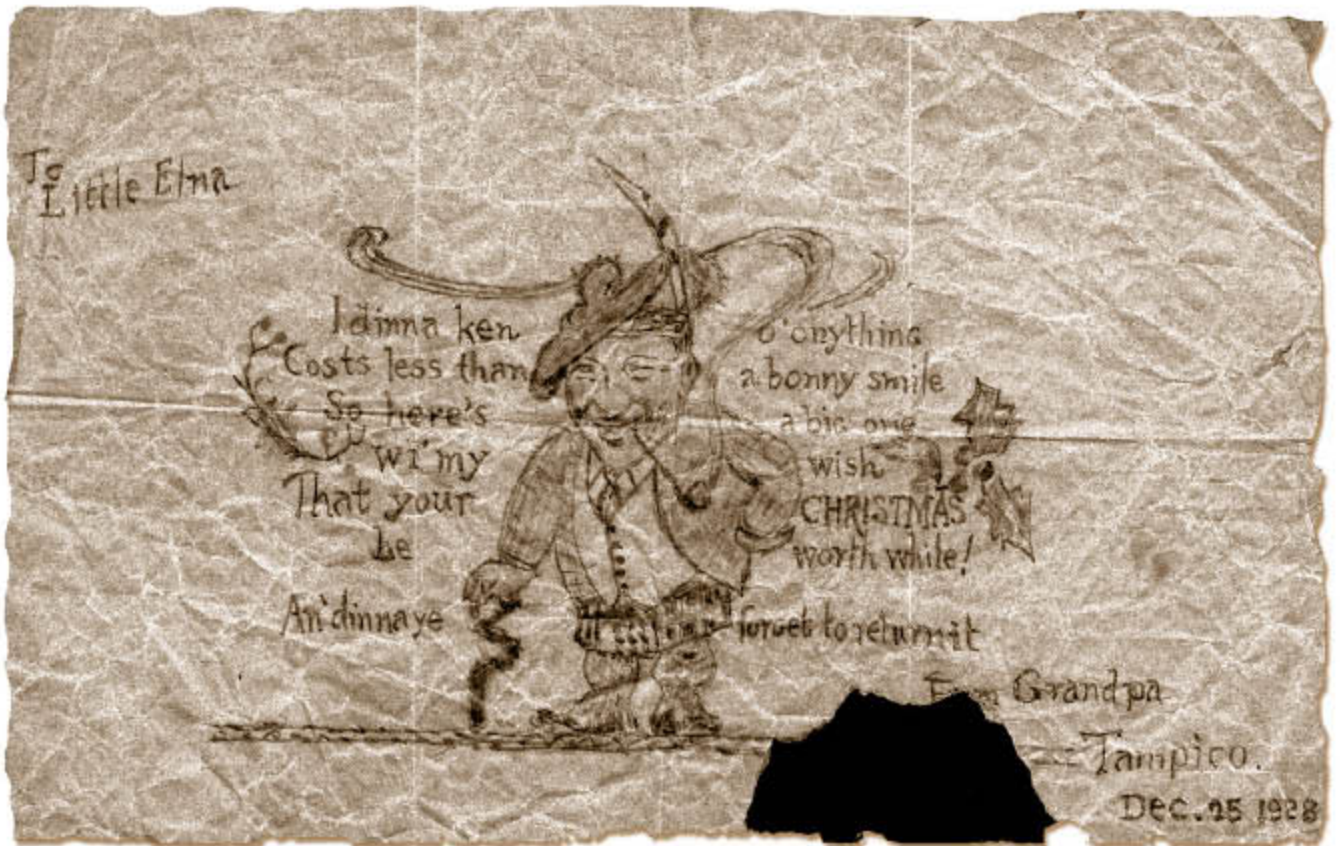 To
Little Elna
I dinna ken o' onything
Costs less than a bonny smile
So here's a big one
wi' my wish
That your CHRISTMAS
be worth while!
An' dinna ye forget to return it
From Grandpa
Tampico.
Dec. 25 1928